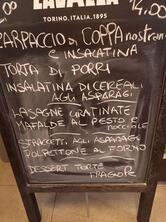 LAVAZZA
TORINO, ITALIA, 1895
CARPACCIO DI COPPA nostrana
E INSALATINA
TORTA DI PORRI
INSALATINA DI CEREALI
AGLI ASPARAGI
LASAGNE GRATINATE
MAFALDE AL PESTO E
NOCCIOLE
STRACCETTI AGLI ASPARAGI
POLPETTONE AL FORNO
DESSERT TORTE
FRAGOLE